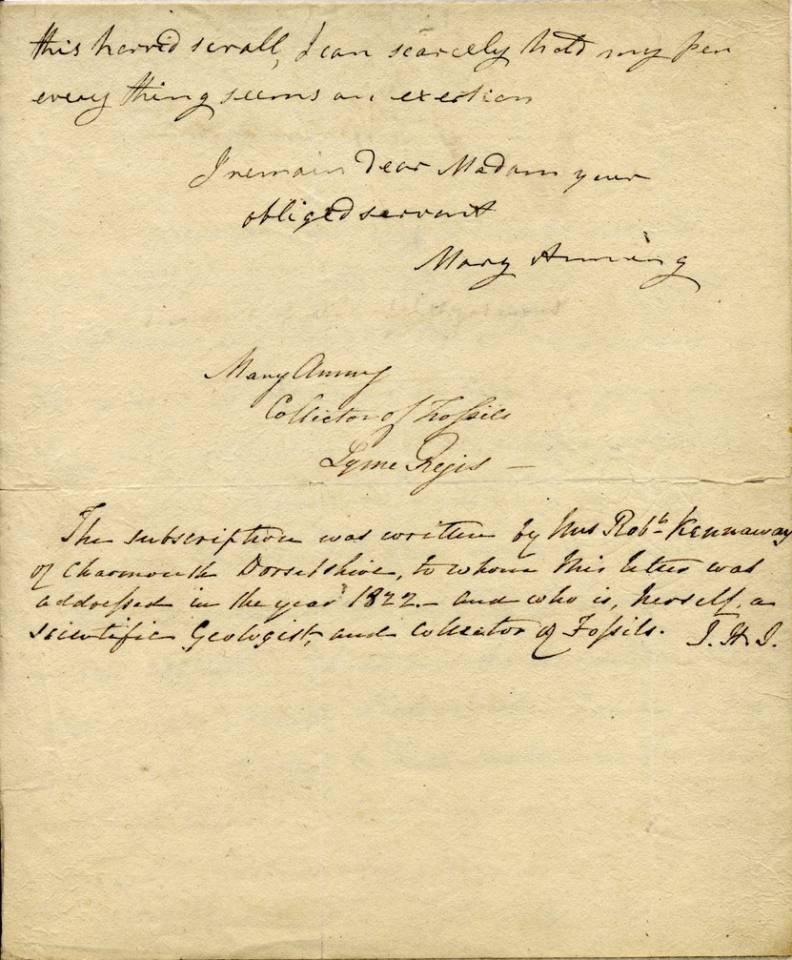 this horrid scrall, I can scarcely hold my pen
every thing seems an exertion
I remain dear Madam your
obliged servant
Mary Anning
Mary Anning
Collector of Fossils
Lyme Regis —
The subscription was written by Mrs Robt. Kennaway
of Charmouth Dorsetshire, to whom this letter was
addressed in the year 1822. – and who is, herself, a
scientific Geologist, and collector of Fossils. J. H. J.